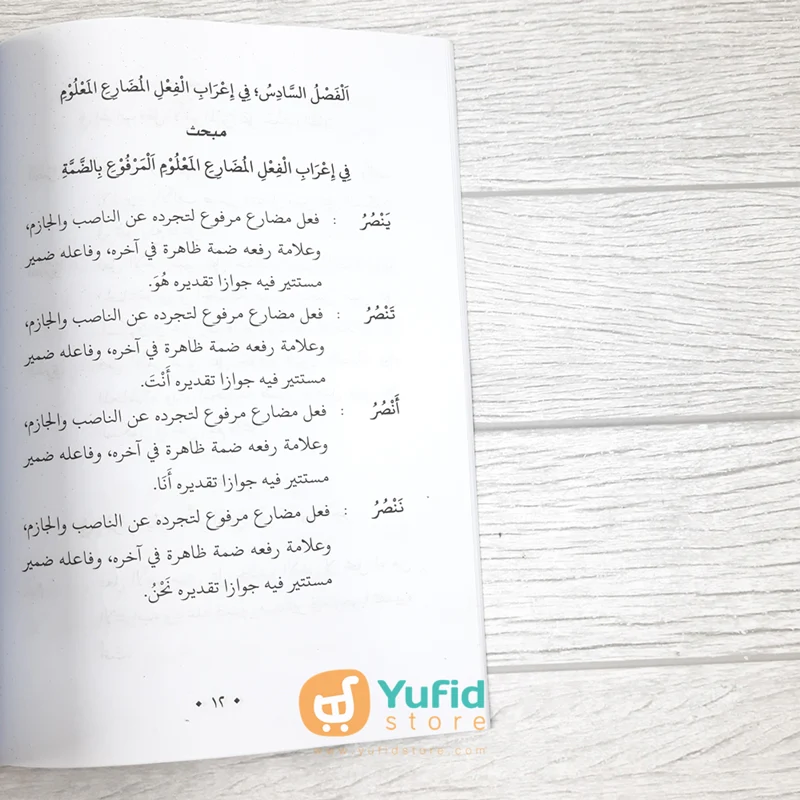 اَلْفَصْلُ السَّادِسُ؛ فِي إِعْرَابِ الْفِعْلِ الْمُضَارِعِ الْمَعْلُوْمِ
مبحث
فِي إِعْرَابِ الْفِعْلِ الْمُضَارِعِ الْمَعْلُوْمِ اَلْمَرْفُوْعِ بِالضَّمَّةِ
يَنْصُرُ : فعل مضارع مرفوع لتجرده عن الناصب والجازم،
وعلامة رفعه ضمة ظاهرة في آخره، وفاعله ضمير
مستتير فيه جوازا تقديره هُوَ.
تَنْصُرُ : فعل مضارع مرفوع لتجرده عن الناصب والجازم،
وعلامة رفعه ضمة ظاهرة في آخره، وفاعله ضمير
مستتير فيه جوازا تقديره أَنْتَ.
أَنْصُرُ : فعل مضارع مرفوع لتجرده عن الناصب والجازم،
وعلامة رفعه ضمة ظاهرة في آخره، وفاعله ضمير
مستتير فيه جوازا تقديره أَنَا.
نَنْصُرُ : فعل مضارع مرفوع لتجرده عن الناصب والجازم،
وعلامة رفعه ضمة ظاهرة في آخره، وفاعله ضمير
مستتير فيه جوازا تقديره نَحْنُ.
• ١٢ •
Yufid
store
www.yufidstore.com